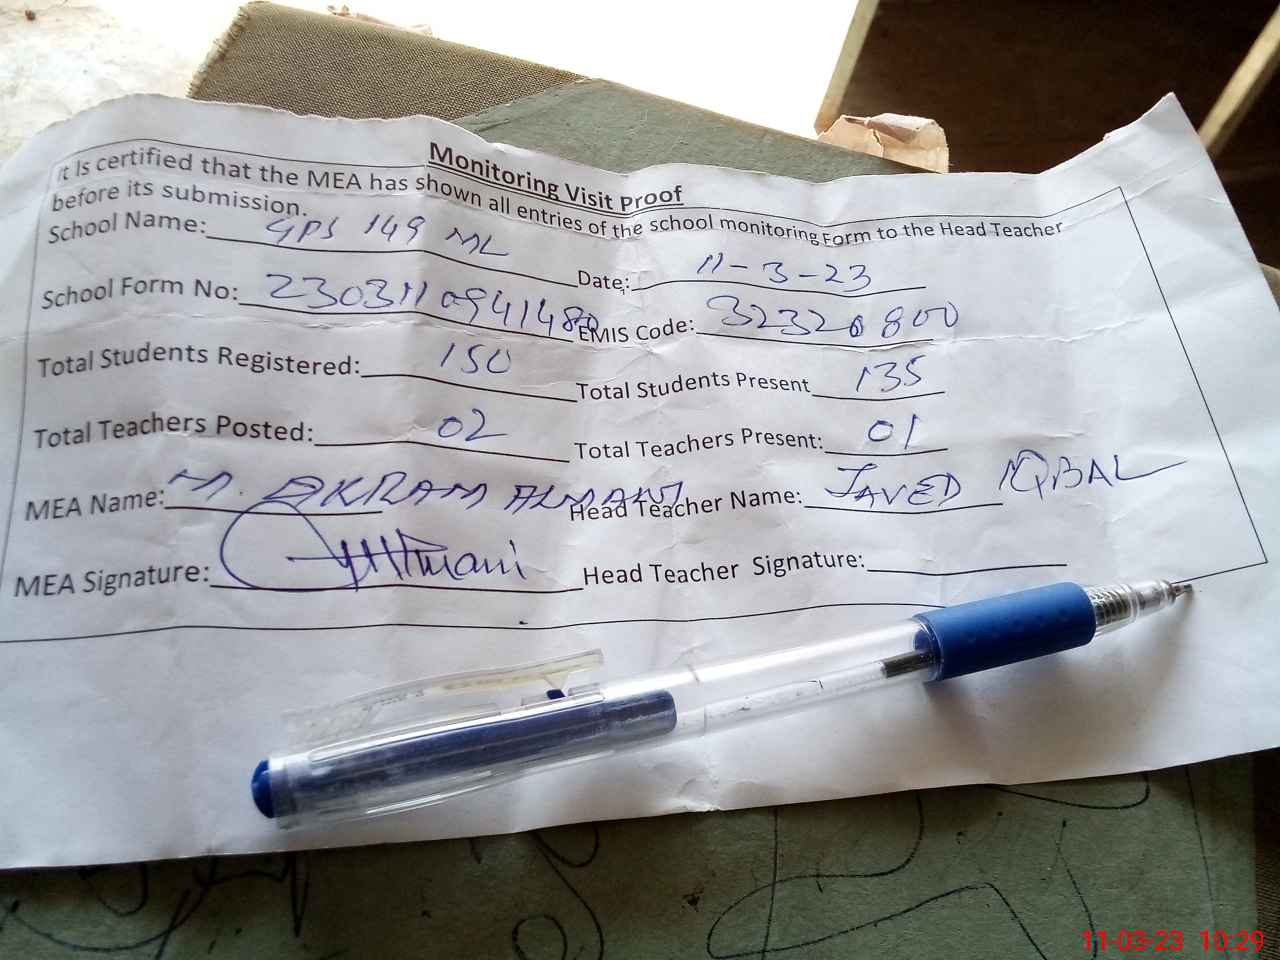 Monitoring Visit Proof
it Is certified that the MEA has shown all entries of the school monitoring Form to the Head Teacher
before its submission.
School Name: GPS 149 ML Date: 11-3-23
School Form No: 230311094148 EMIS Code: 32320800
Total Students Registered: 150 Total Students Present 135
Total Teachers Posted: 02 Total Teachers Present: 01
MEA Name: M. AKRAM ALMANI Head Teacher Name: JAVED IQBAL
MEA Signature: Head Teacher Signature:
11-03-23 10:29